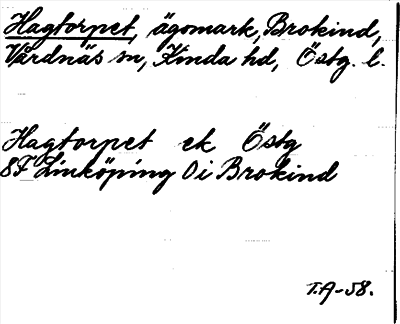 Hagtorpet, ägomark, Brokind,
Vårdnäs sn, Kinda hd, Östg. l.
Hagtorpet ek Östg
8F Linköping 0i Brokind
T.A-58.